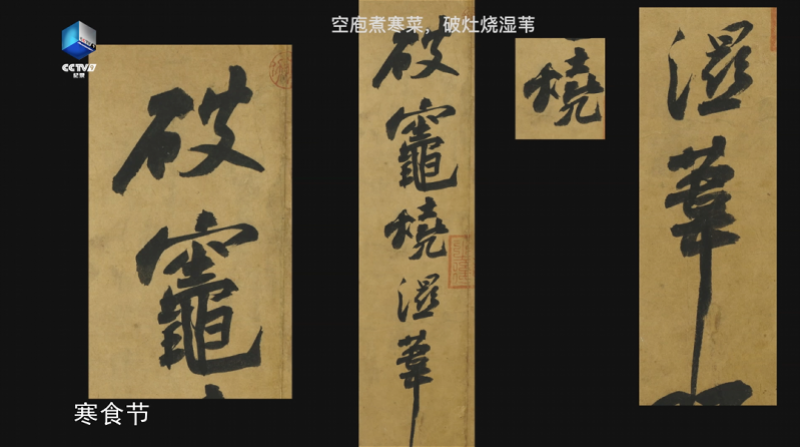 空庖煮寒菜，破灶烧湿苇
CCTV9
纪录
破
竈
破
竈
燒
濕
葦
燒
濕
葦
寒食节